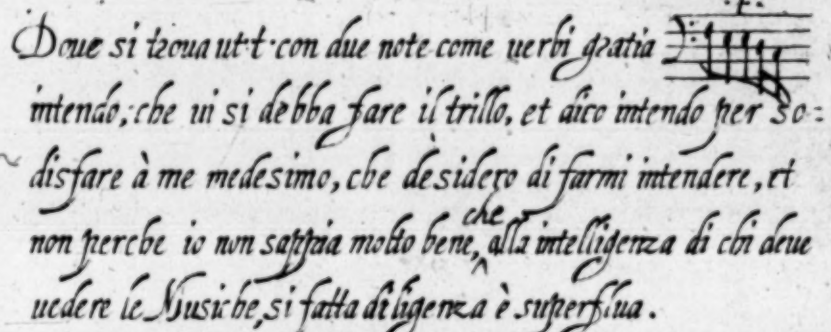 Doue si troua ut·t·con due note come uerbi gratia ·t·
intendo, che ui si debba fare il trillo, et dico intendo per so=
disfare à me medesimo, che desidero di farmi intendere, et
non perche io non sappia molto bene, che alla intelligenza di chi deue
uedere le Musiche, si fatta diligenza è superflua.